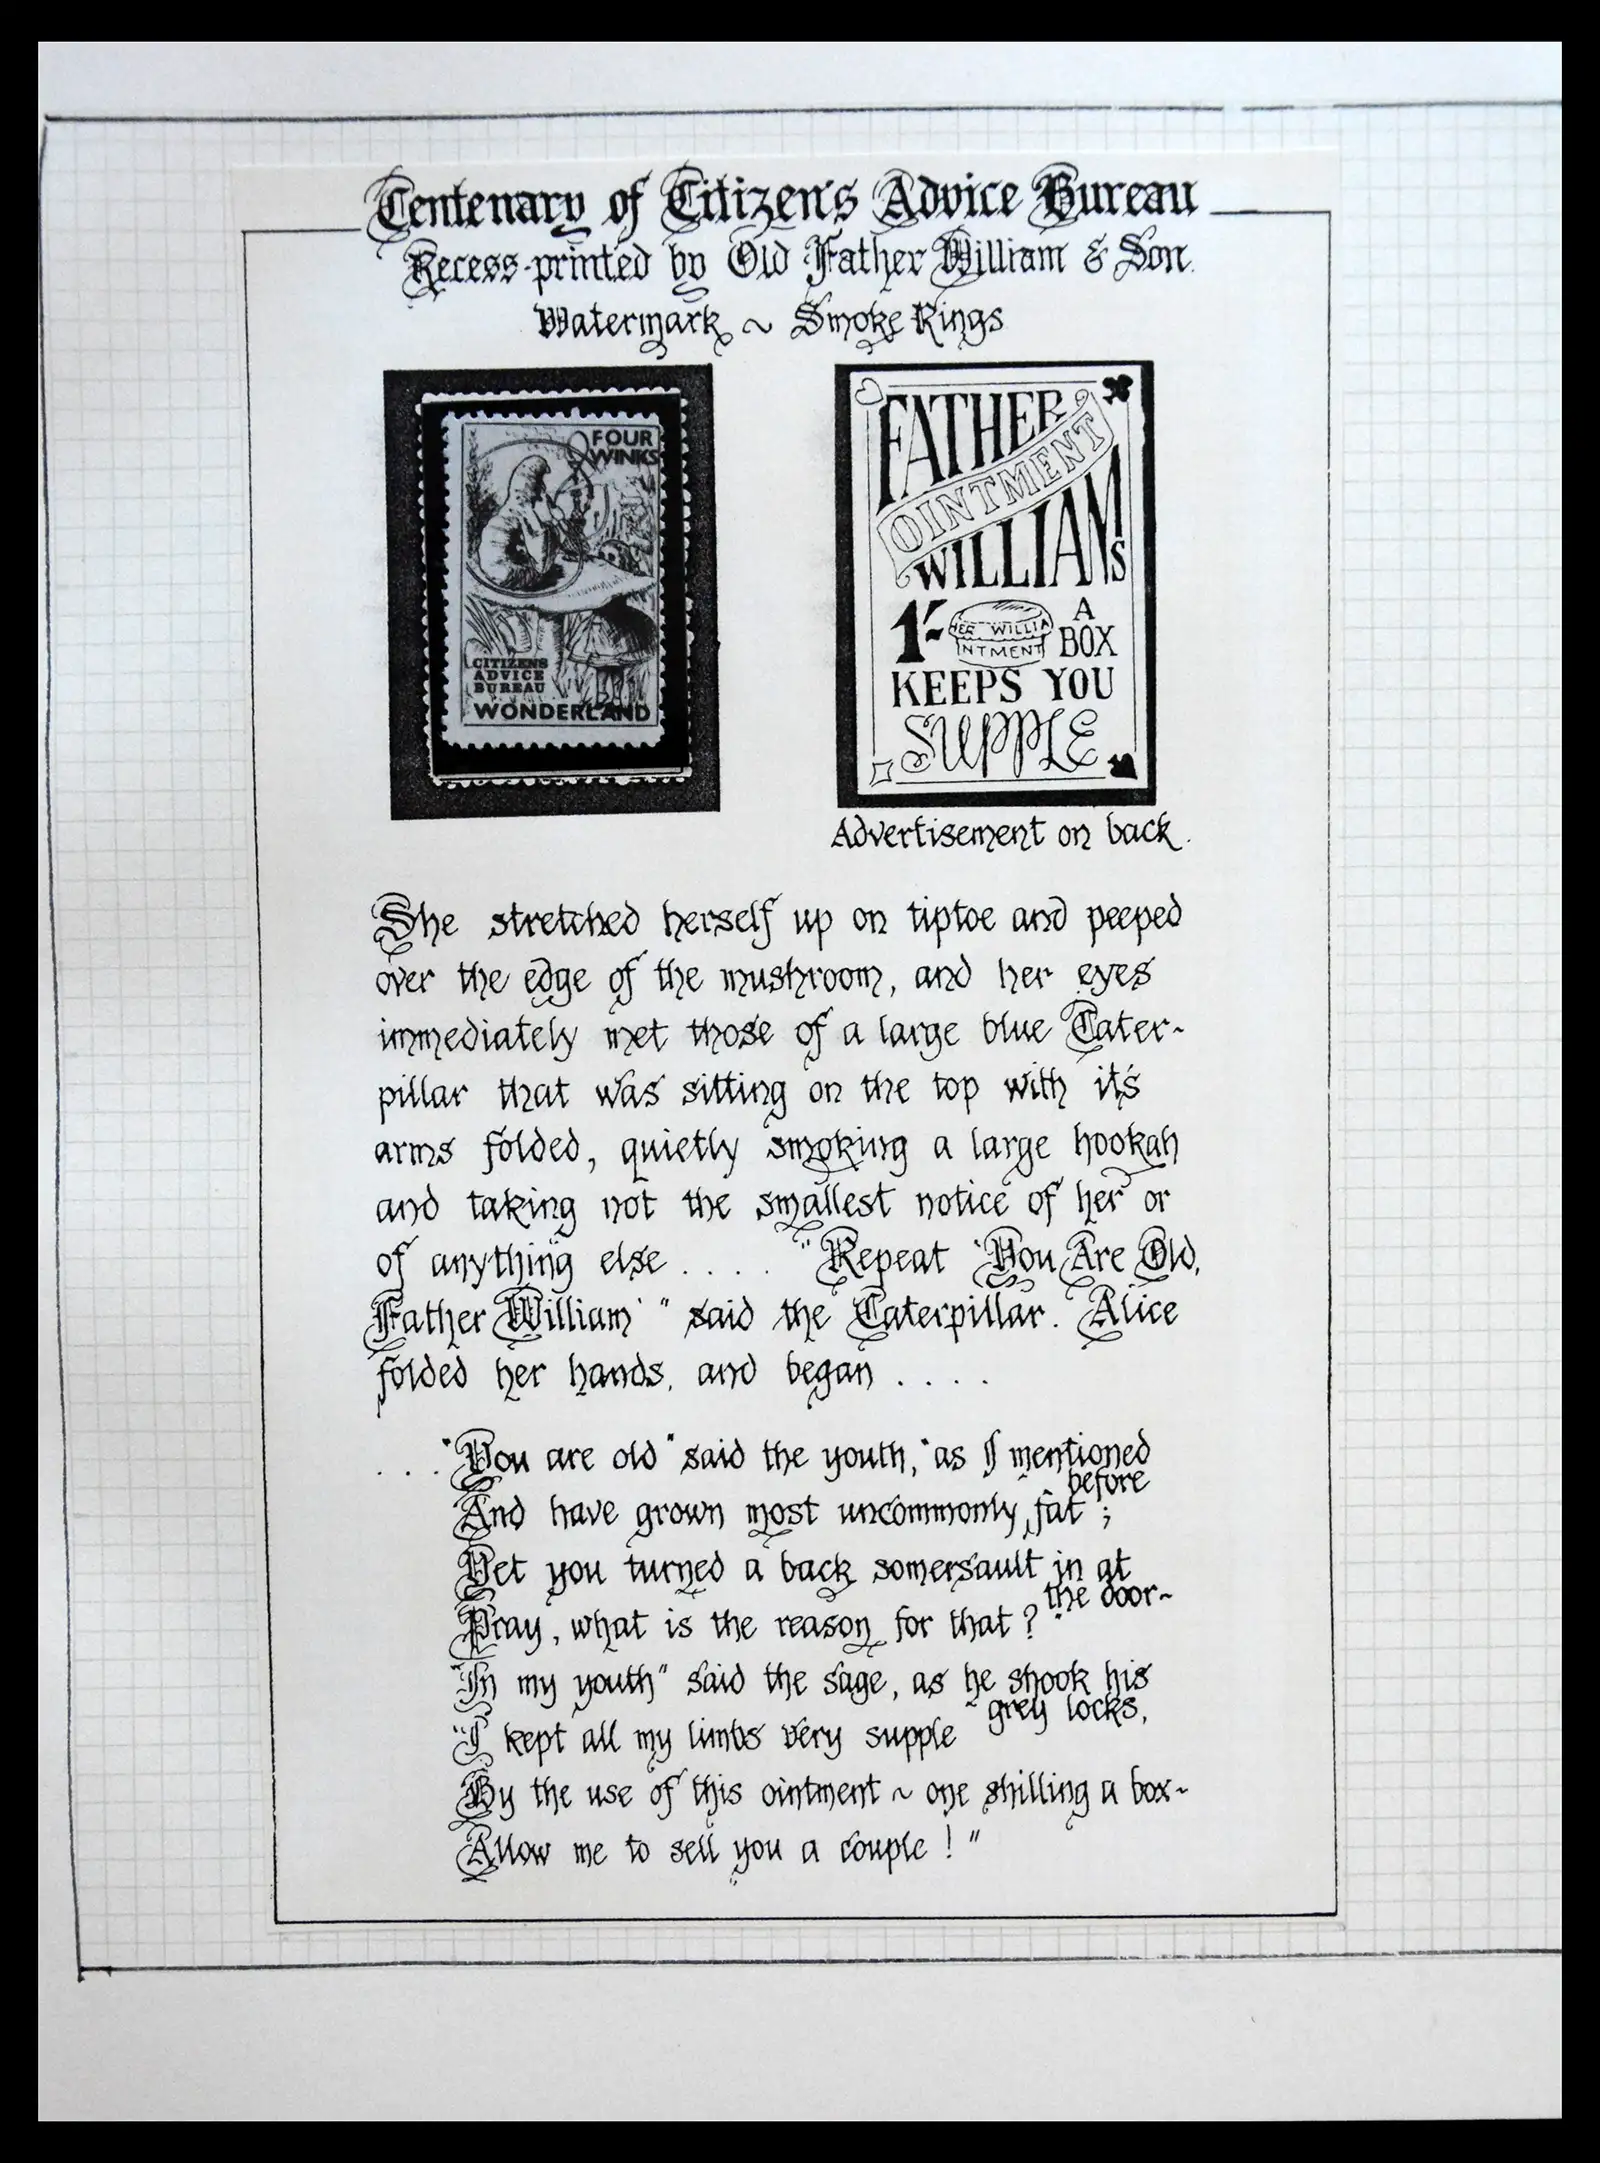 Centenary of Citizen's Advice Bureau
Recess-printed by Old Father William & Son.
Watermark ~ Smoke Rings
FOUR
WINKS
CITIZENS
ADVICE
BUREAU
WONDERLAND
FATHER
OINTMENT
WILLIAMS
1/- HER WILLIA A
NTMENT BOX
KEEPS YOU
SUPPLE
Advertisement on back.
She stretched herself up on tiptoe and peeped
over the edge of the mushroom, and her eyes
immediately met those of a large blue Cater-
pillar that was sitting on the top with it's
arms folded, quietly smoking a large hookah
and taking not the smallest notice of her or
of anything else . . . . "Repeat 'You Are Old,
Father William' " said the Caterpillar. Alice
folded her hands, and began . . . .
. . . "You are old" said the youth, "as I mentioned
before
And have grown most uncommonly fat ;
Yet you turned a back somersault in at
the door~
Pray, what is the reason for that ?"
"In my youth" said the sage, as he shook his
grey locks,
"I kept all my limbs very supple
By the use of this ointment ~ one shilling a box~
Allow me to sell you a couple ! "